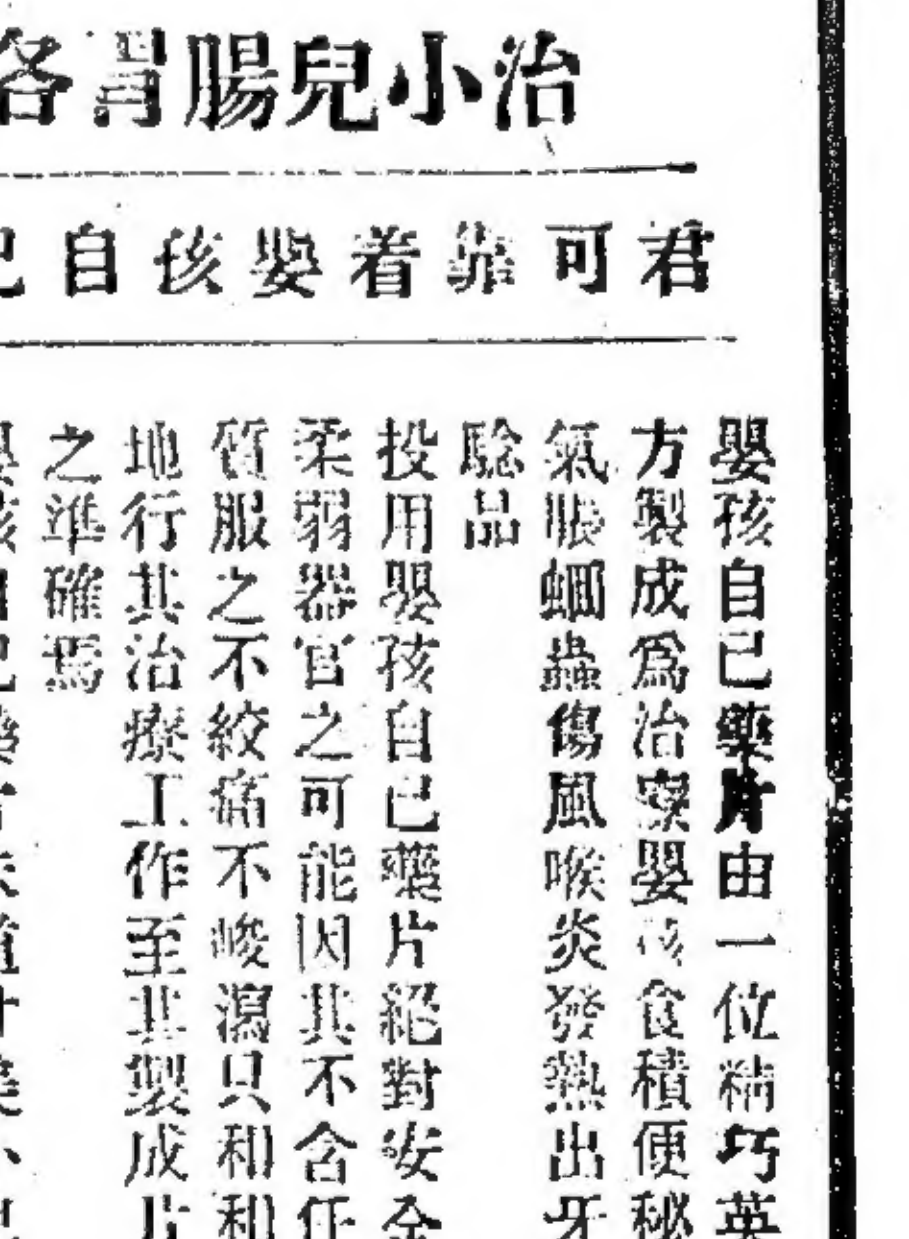 治小兒腸胃各
君可靠着嬰孩自己
嬰孩自己藥片由一位精巧英
方製成爲治療嬰孩食積便秘
氣脹蛔蟲傷風喉炎發熱出牙
驗品
投用嬰孩自己藥片絕對安全
柔弱器官之可能因其不含任
質服之不絞痛不峻瀉只和和
地行其治療工作至其製成片
之準確焉